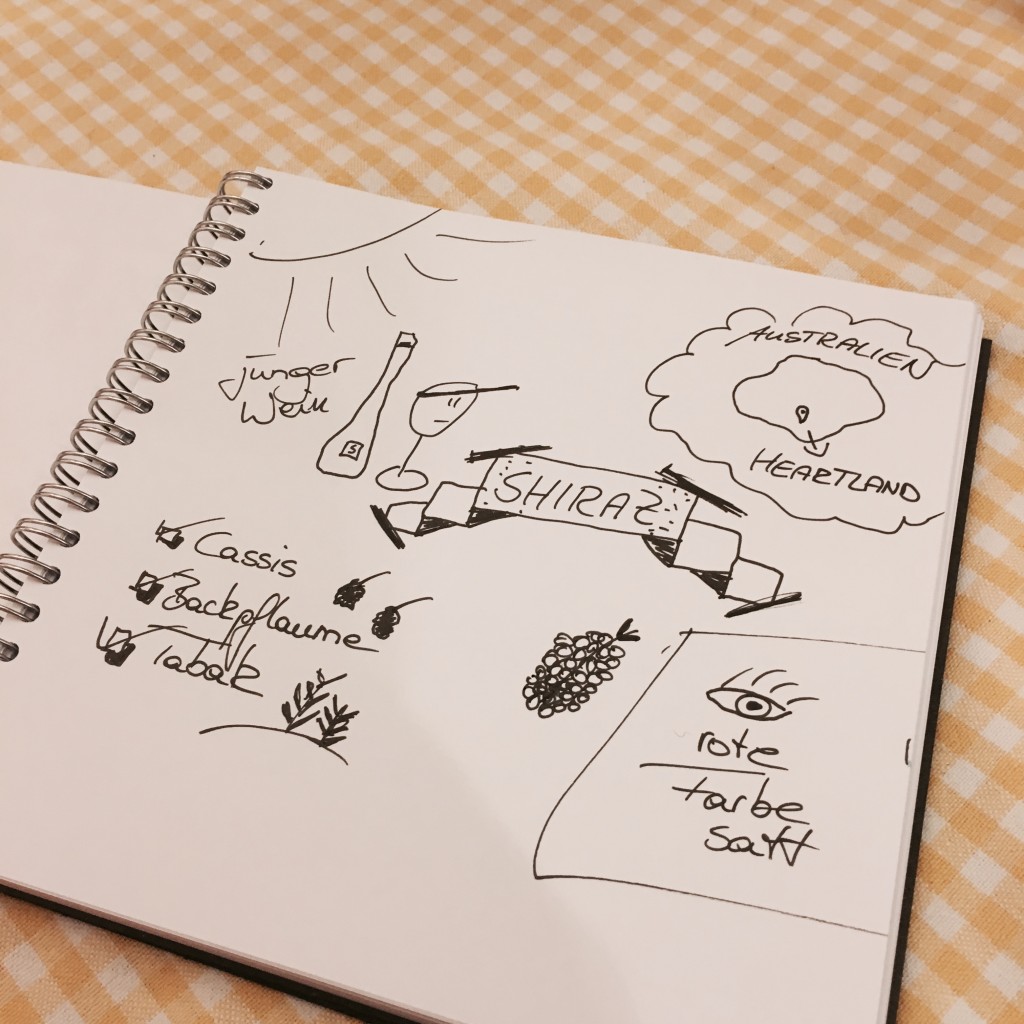 junger
Wein
S
SHIRAZ
AUSTRALIEN
HEARTLAND
Cassis
Backpflaume
Tabak
rote
farbe
satt